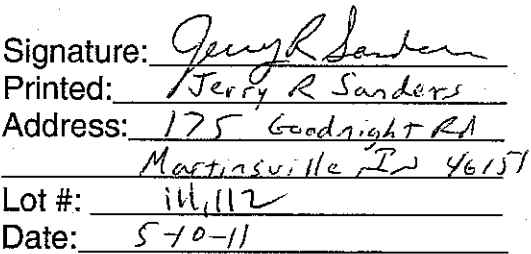 Signature: Jerry R Sanders
Printed: Jerry R Sanders
Address: 175 Goodnight Rd
Martinsville, IN 46151
Lot #: 111,112
Date: 5-10-11